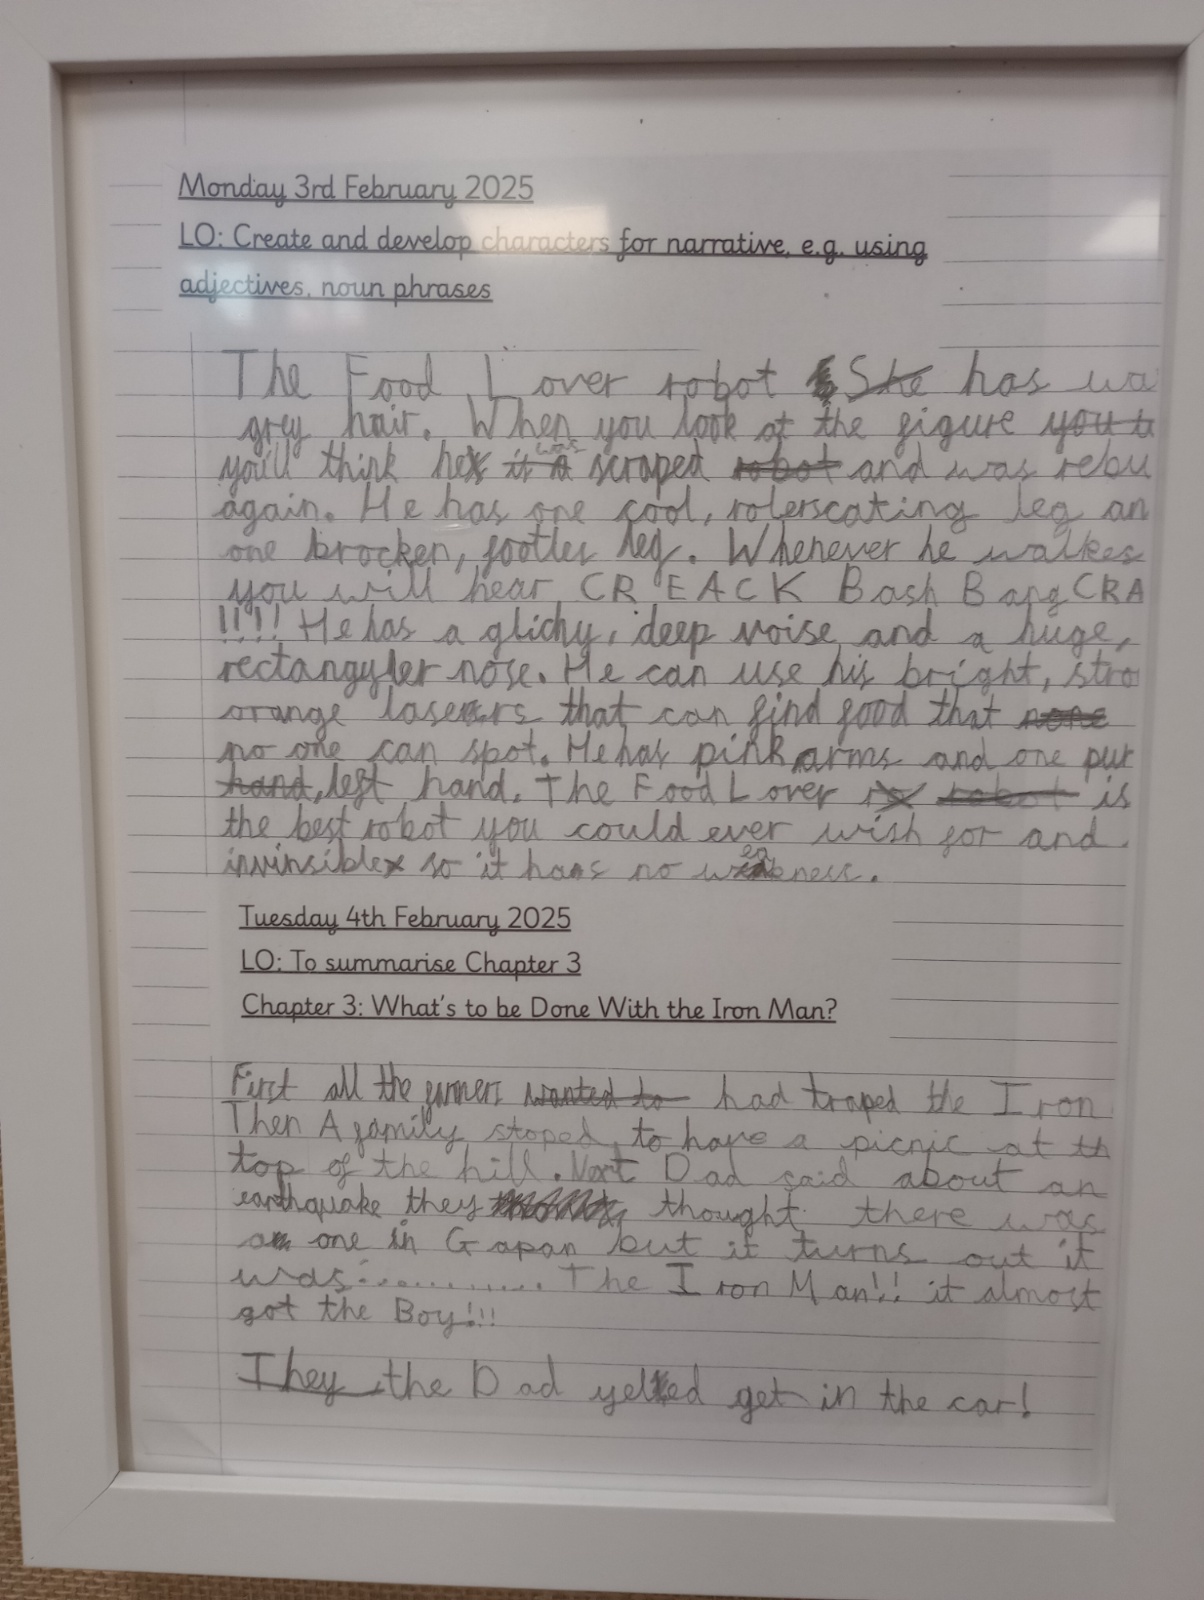 Monday 3rd February 2025
LO: Create and develop characters for narrative, e.g. using
adjectives, noun phrases
The Food Lover robot She has wa
grey hair. When you look at the figure you t
you'll think hes it was scraped robot and was rebu
again. He has one cool, rolerscating leg an
one brocken, footles leg. Whenever he walkes
you will hear CREACK Bash Bang CRA
!!!! He has a glichy, deep voise and a huge,
rectangyler nose. He can use his bright, stro
orange lasers that can find food that none
no one can spot. He has pink arms and one pur
hand, left hand. The Food Lover robot is
the best robot you could ever wish for and
invinsible so it has no weakness.
Tuesday 4th February 2025
LO: To summarise Chapter 3
Chapter 3: What's to be Done With the Iron Man?
First all the wanted to had traped the Iron
Then A family stoped to have a picnic at th
top of the hill. Next Dad said about an
earthquake they thought there was
one in Gapan but it turns out it
was:............ The Iron Man!! it almost
got the Boy!!!
They the Dad yelled get in the car!